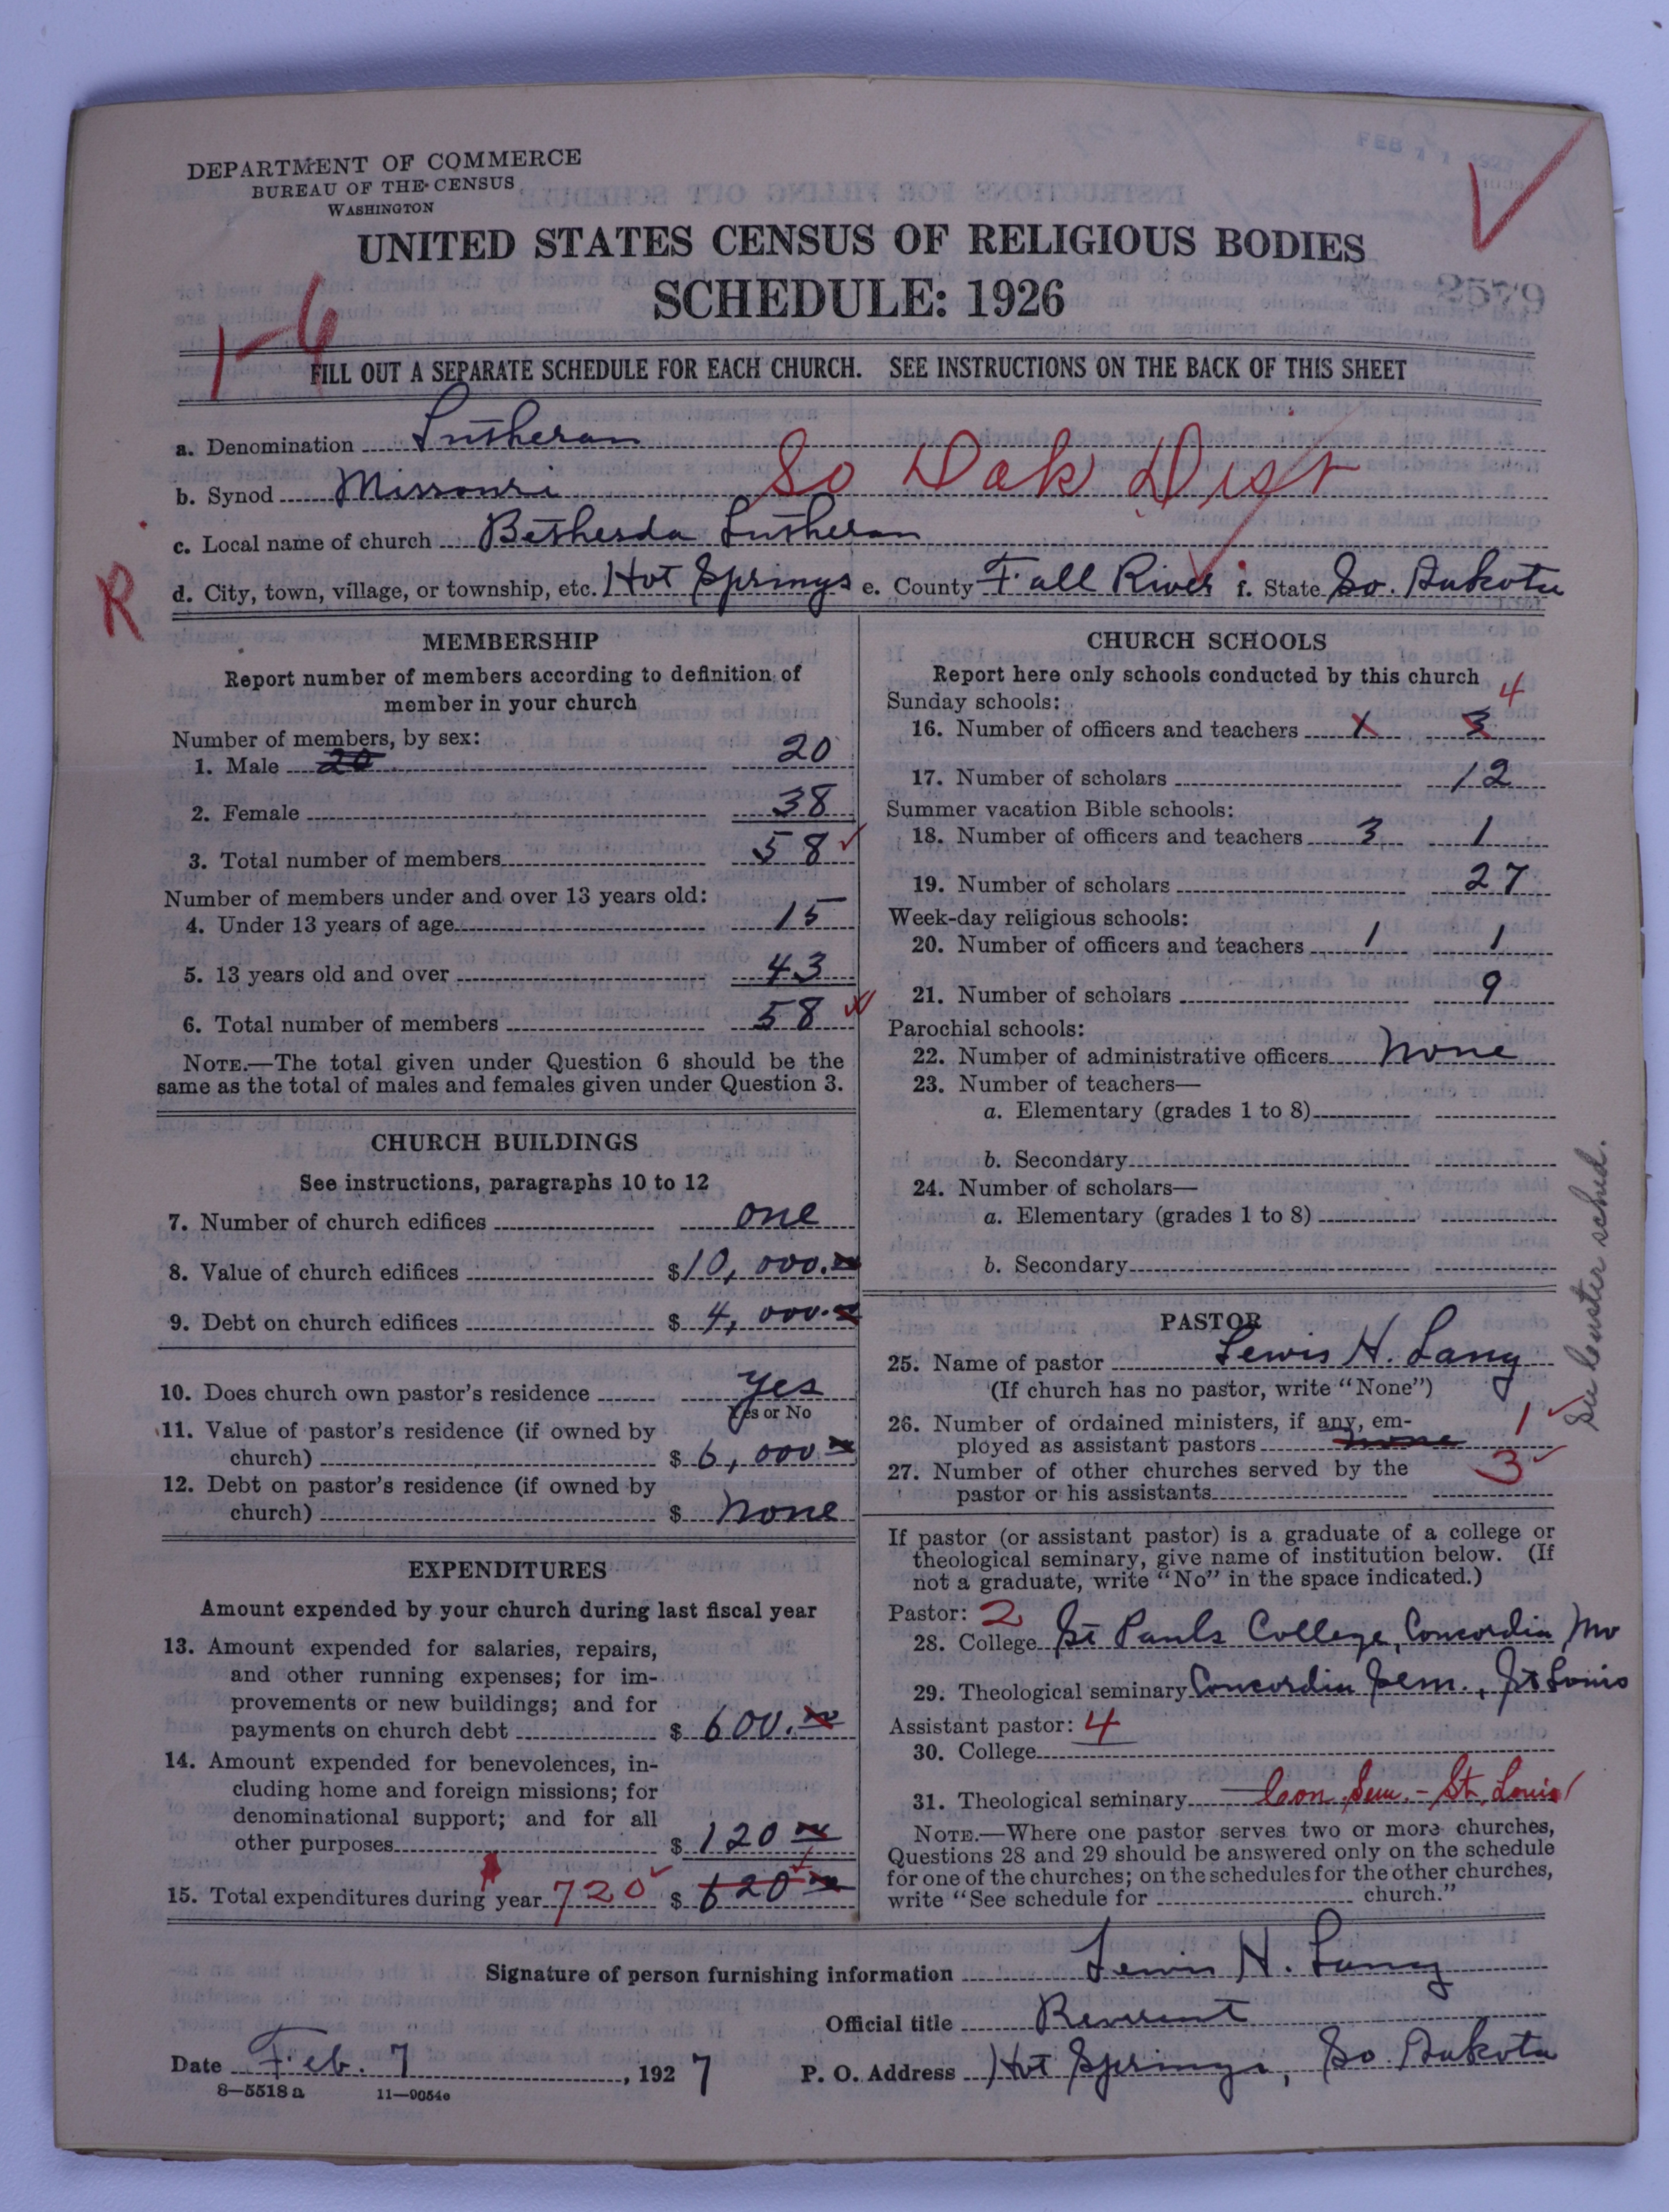 DEPARTMENT OF COMMERCE
BUREAU OF THE CENSUS
WASHINGTON
UNITED STATES CENSUS OF RELIGIOUS BODIES
SCHEDULE: 1926
2579
1-6
FILL OUT A SEPARATE SCHEDULE FOR EACH CHURCH. SEE INSTRUCTIONS ON THE BACK OF THIS SHEET
a. Denomination Lutheran
b. Synod Missouri So Dak Dist
c. Local name of church Bethesda Lutheran
R
d. City, town, village, or township, etc. Hot Springs e. County Fall River f. State So. Dakota
MEMBERSHIP
Report number of members according to definition of
member in your church
Number of members, by sex:
1. Male 20 20
2. Female 38
3. Total number of members 58
Number of members under and over 13 years old:
4. Under 13 years of age 15
5. 13 years old and over 43
6. Total number of members 58
NOTE.—The total given under Question 6 should be the
same as the total of males and females given under Question 3.
CHURCH BUILDINGS
See instructions, paragraphs 10 to 12
7. Number of church edifices one
8. Value of church edifices $10,000.00
9. Debt on church edifices $4,000.00
10. Does church own pastor's residence yes
Yes or No
11. Value of pastor's residence (if owned by
church) $6,000 00
12. Debt on pastor's residence (if owned by
church) $ none
EXPENDITURES
Amount expended by your church during last fiscal year
13. Amount expended for salaries, repairs,
and other running expenses; for im-
provements or new buildings; and for
payments on church debt $600.00
14. Amount expended for benevolences, in-
cluding home and foreign missions; for
denominational support; and for all
other purposes $120 00
15. Total expenditures during year 720 $620 00
CHURCH SCHOOLS
Report here only schools conducted by this church
Sunday schools: 4
16. Number of officers and teachers 1 3
17. Number of scholars 12
Summer vacation Bible schools:
18. Number of officers and teachers 3 1
19. Number of scholars 27
Week-day religious schools:
20. Number of officers and teachers 1 1
21. Number of scholars 9
Parochial schools:
22. Number of administrative officers none
23. Number of teachers—
a. Elementary (grades 1 to 8)
b. Secondary
24. Number of scholars—
a. Elementary (grades 1 to 8)
b. Secondary
PASTOR
25. Name of pastor Lewis H. Lang
(If church has no pastor, write "None")
26. Number of ordained ministers, if any, em- 1
ployed as assistant pastors none
27. Number of other churches served by the 3
pastor or his assistants
If pastor (or assistant pastor) is a graduate of a college or
theological seminary, give name of institution below. (If
not a graduate, write "No" in the space indicated.)
Pastor: 2
28. College St Pauls College, Concordia Mo
29. Theological seminary Concordia Sem., St Louis
Assistant pastor: 4
30. College
31. Theological seminary Con. Sem. - St. Louis
NOTE.—Where one pastor serves two or more churches,
Questions 28 and 29 should be answered only on the schedule
for one of the churches; on the schedules for the other churches,
write "See schedule for church."
sched.
Signature of person furnishing information Lewis H. Lang
Official title Reverent
Date Feb. 7, 1927 P. O. Address Hot Springs, So Dakota
8—5518a 11—9054c